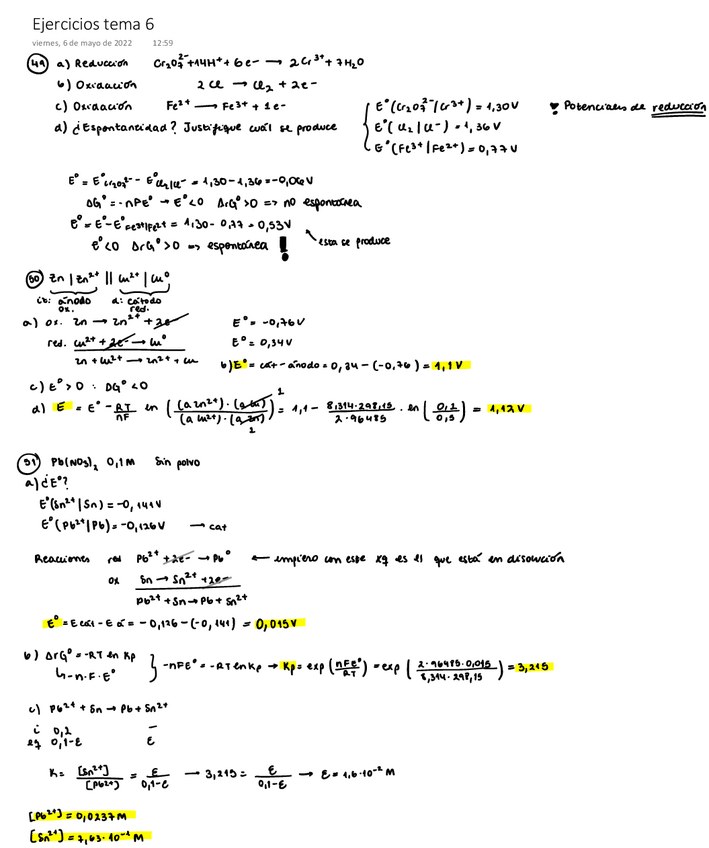 Ejercicios tema 6
viernes, 6 de mayo de 2022 12:59
49 a) Reducción Cr₂O₇²⁻ + 14H⁺ + 6e⁻ → 2Cr³⁺ + 7H₂O
b) Oxidación 2Cl → Cl₂ + 2e⁻
c) Oxidación Fe²⁺ → Fe³⁺ + 1e⁻
d) ¿Espontaneidad? Justifique cuál se produce
E°(Cr₂O₇²⁻|Cr³⁺) = 1,30V
E°(Cl₂|Cl⁻) = 1,36V
E°(Fe³⁺|Fe²⁺) = 0,77V
! Potenciales de reducción
E° = E°Cr₂O₇²⁻ - E°Cl₂|Cl⁻ = 1,30 - 1,36 = -0,06V
ΔG° = -nFE° → E°<0 ΔrG°>0 => no espontánea
E° = E° - E°Fe³⁺|Fe²⁺ = 1,30 - 0,77 = 0,53V
E°<0 ΔrG°>0 => espontánea !
esta se produce
50 Zn|Zn²⁺ || Cu²⁺|Cu⁰
iz: ánodo d: cátodo
ox. red.
a) ox. Zn → Zn²⁺ + 2e⁻ E° = -0,76V
red. Cu²⁺ + 2e⁻ → Cu⁰ E° = 0,34V
Zn + Cu²⁺ → Zn²⁺ + Cu
b) E° = cát - ánodo = 0,34 - (-0,76) = 1,1V
c) E°>0 : ΔG°<0
d) E = E° - RT/nF ln ((a Zn²⁺)·(a Cu) / (a Cu²⁺)·(a Zn)) = 1,1 - 8,314·298,15 / 2·96485 · ln (0,2/0,5) = 1,12V
51 Pb(NO₃)₂ 0,1M Sn polvo
a) ¿E°?
E°(Sn²⁺|Sn) = -0,141V
E°(Pb²⁺|Pb) = -0,126V → cat
Reacciones red Pb²⁺ + 2e⁻ → Pb⁰ ← empiezo con ese xq es el que está en disolución
ox Sn → Sn²⁺ + 2e⁻
Pb²⁺ + Sn → Pb + Sn²⁺
E° = E cat - E á = -0,126 - (-0,141) = 0,015V
b) ΔrG° = -RT ln Kp
-n·F·E°
-nFE° = -RT ln Kp → Kp = exp (nFE°/RT) = exp (2·96485·0,015 / 8,314·298,15) = 3,215
c) Pb²⁺ + Sn → Pb + Sn²⁺
i 0,2 —
eq 0,1-ε ε
K = [Sn²⁺]/[Pb²⁺] = ε/0,1-ε → 3,215 = ε/0,1-ε → ε = 7,6·10⁻² M
[Pb²⁺] = 0,0237M
[Sn²⁺] = 7,63·10⁻² M